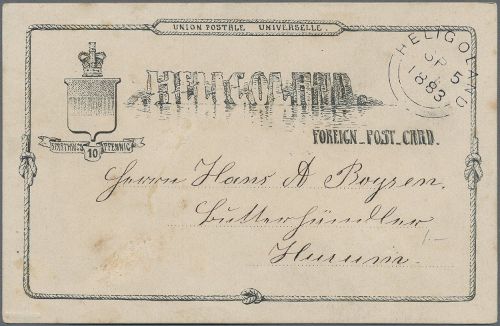 UNION POSTALE UNIVERSELLE
HELIGOLAND
SP 5
1883
HELIGOLAND
FOREIGN_POST_CARD.
FARTHINGS 10 PFENNIG
Herrn Hans A Boysen.
Butterhändler
Husum.